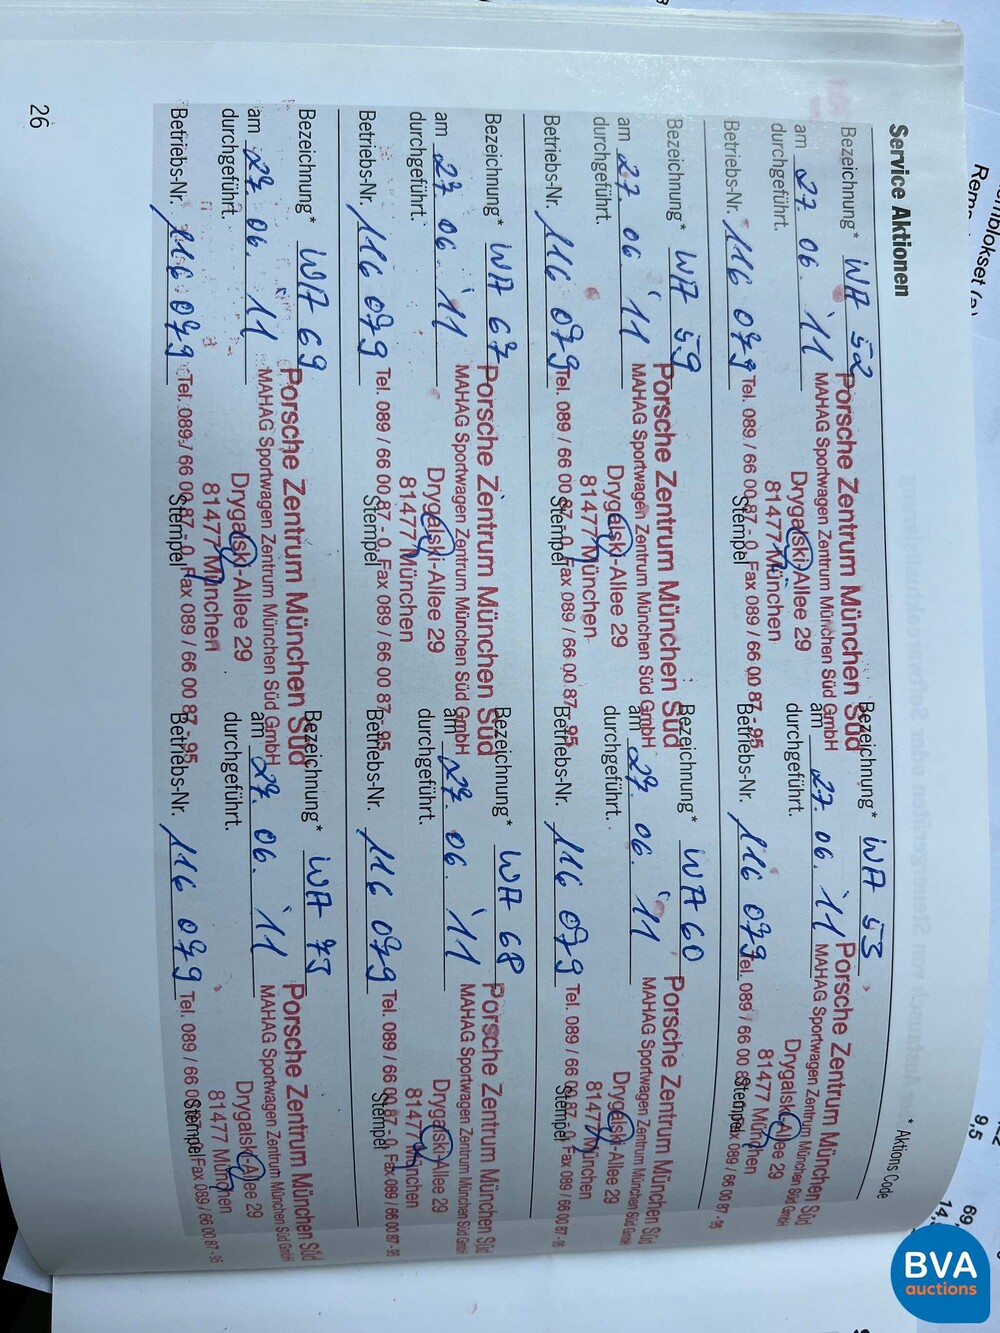 Service Aktionen
* Aktions Code
Bezeichnung* WA 52
am 27. 06. '11
durchgeführt.
Betriebs-Nr. 116 079
Porsche Zentrum München Süd
MAHAG Sportwagen Zentrum München Süd GmbH
Drygalski-Allee 29
81477 München
Tel. 089 / 66 00 87 - 0 Fax 089 / 66 00 87 - 95
Stempel
Bezeichnung* WA 53
am 27. 06. '11
durchgeführt.
Betriebs-Nr. 116 079
Porsche Zentrum München Süd
MAHAG Sportwagen Zentrum München Süd GmbH
Drygalski-Allee 29
81477 München
Tel. 089 / 66 00 87 - 0 Fax 089 / 66 00 87 - 95
Stempel
Bezeichnung* WA 59
am 27. 06. '11
durchgeführt.
Betriebs-Nr. 116 079
Porsche Zentrum München Süd
MAHAG Sportwagen Zentrum München Süd GmbH
Drygalski-Allee 29
81477 München
Tel. 089 / 66 00 87 - 0 Fax 089 / 66 00 87 - 95
Stempel
Bezeichnung* WA 60
am 27. 06. '11
durchgeführt.
Betriebs-Nr. 116 079
Porsche Zentrum München Süd
MAHAG Sportwagen Zentrum München Süd GmbH
Drygalski-Allee 29
81477 München
Tel. 089 / 66 00 87 - 0 Fax 089 / 66 00 87 - 95
Stempel
Bezeichnung* WA 67
am 27. 06. '11
durchgeführt.
Betriebs-Nr. 116 079
Porsche Zentrum München Süd
MAHAG Sportwagen Zentrum München Süd GmbH
Drygalski-Allee 29
81477 München
Tel. 089 / 66 00 87 - 0 Fax 089 / 66 00 87 - 95
Stempel
Bezeichnung* WA 68
am 27. 06. '11
durchgeführt.
Betriebs-Nr. 116 079
Porsche Zentrum München Süd
MAHAG Sportwagen Zentrum München Süd GmbH
Drygalski-Allee 29
81477 München
Tel. 089 / 66 00 87 - 0 Fax 089 / 66 00 87 - 95
Stempel
Bezeichnung* WA 69
am 27. 06. '11
durchgeführt.
Betriebs-Nr. 116 079
Porsche Zentrum München Süd
MAHAG Sportwagen Zentrum München Süd GmbH
Drygalski-Allee 29
81477 München
Tel. 089 / 66 00 87 - 0 Fax 089 / 66 00 87 - 95
Stempel
Bezeichnung* WA 73
am 27. 06. '11
durchgeführt.
Betriebs-Nr. 116 079
Porsche Zentrum München Süd
MAHAG Sportwagen Zentrum München Süd GmbH
Drygalski-Allee 29
81477 München
Tel. 089 / 66 00 87 - 0 Fax 089 / 66 00 87 - 95
Stempel
26
9,5
BVA
auctions